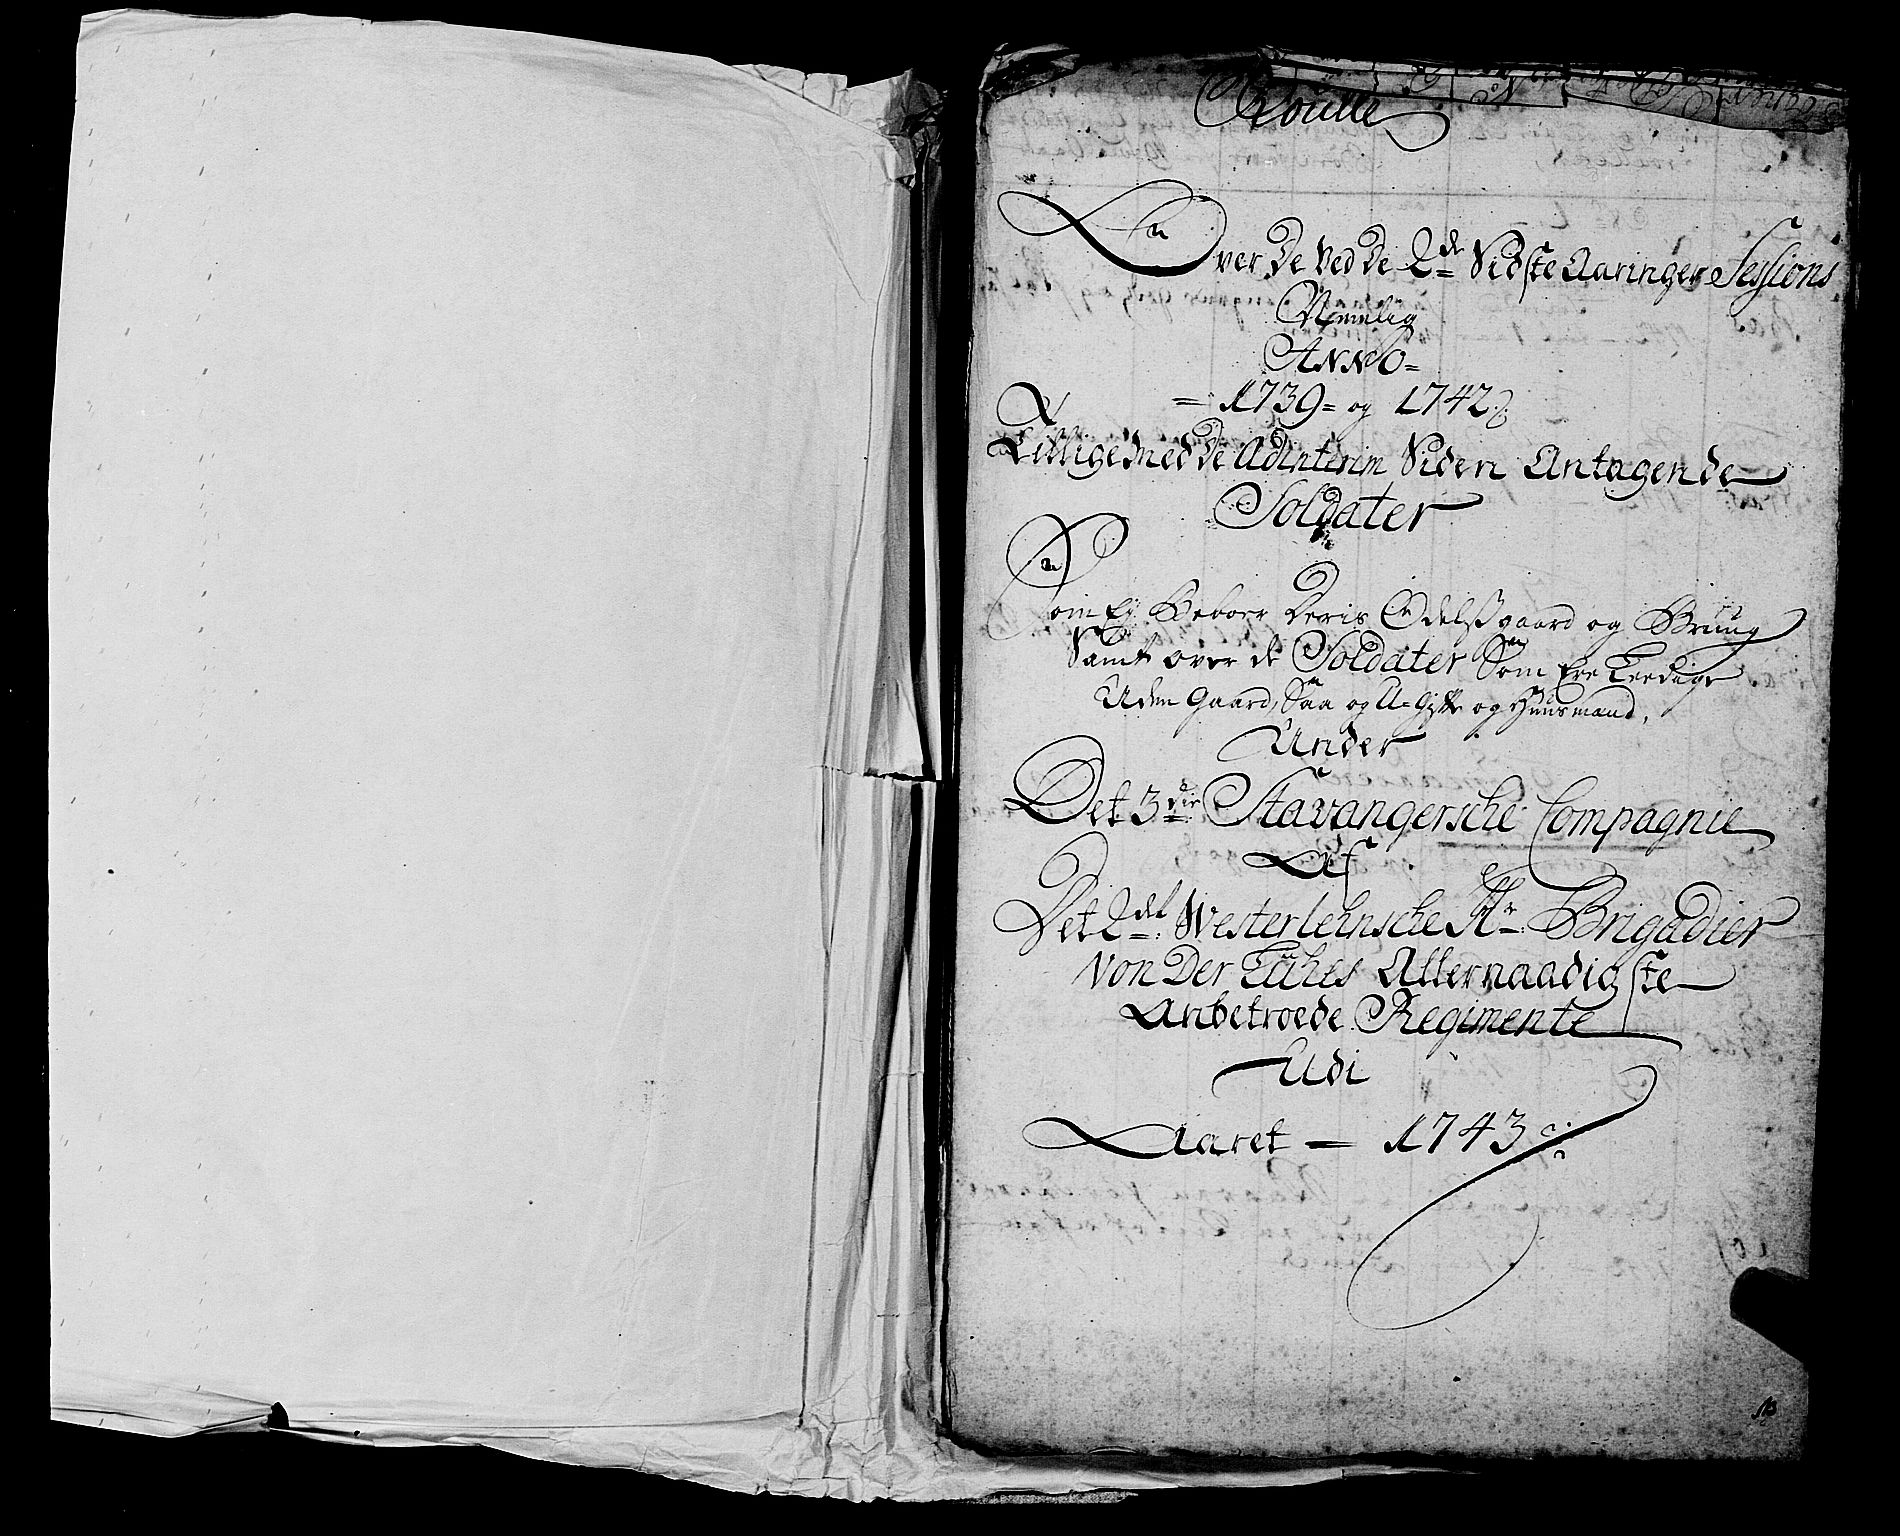 Roulle
Over De Ved De 2de Sidste Aaringer Sessions
Nemlig
ANNO=
= 1739= og 1742
Lillige Med De Adinterim Siden Antagende
Soldater
Som Ej Beboer Deris Odelsgaard og Bruug
Samt over de Soldater Som Ere Leedige
Uden Gaard, Saa og U=Gift og Huusmænd,
Under
Det 3die Stavangersche Compagnie
Af
Det 2det Westerlehnsche Hr Brigadier
Von Der Lühes Allernaadigste
Anbetroede Regimente
Udi
Aaret = 1743